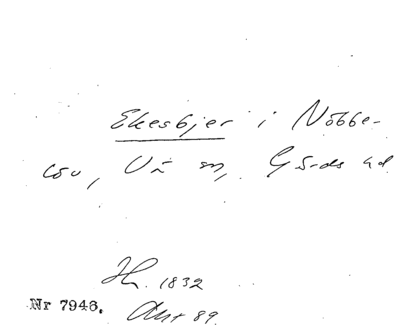 Ekesbjer i Nöbbe-
löv, Vä sn, Gärds hd.
1832
Nr 7946. Akt 89.